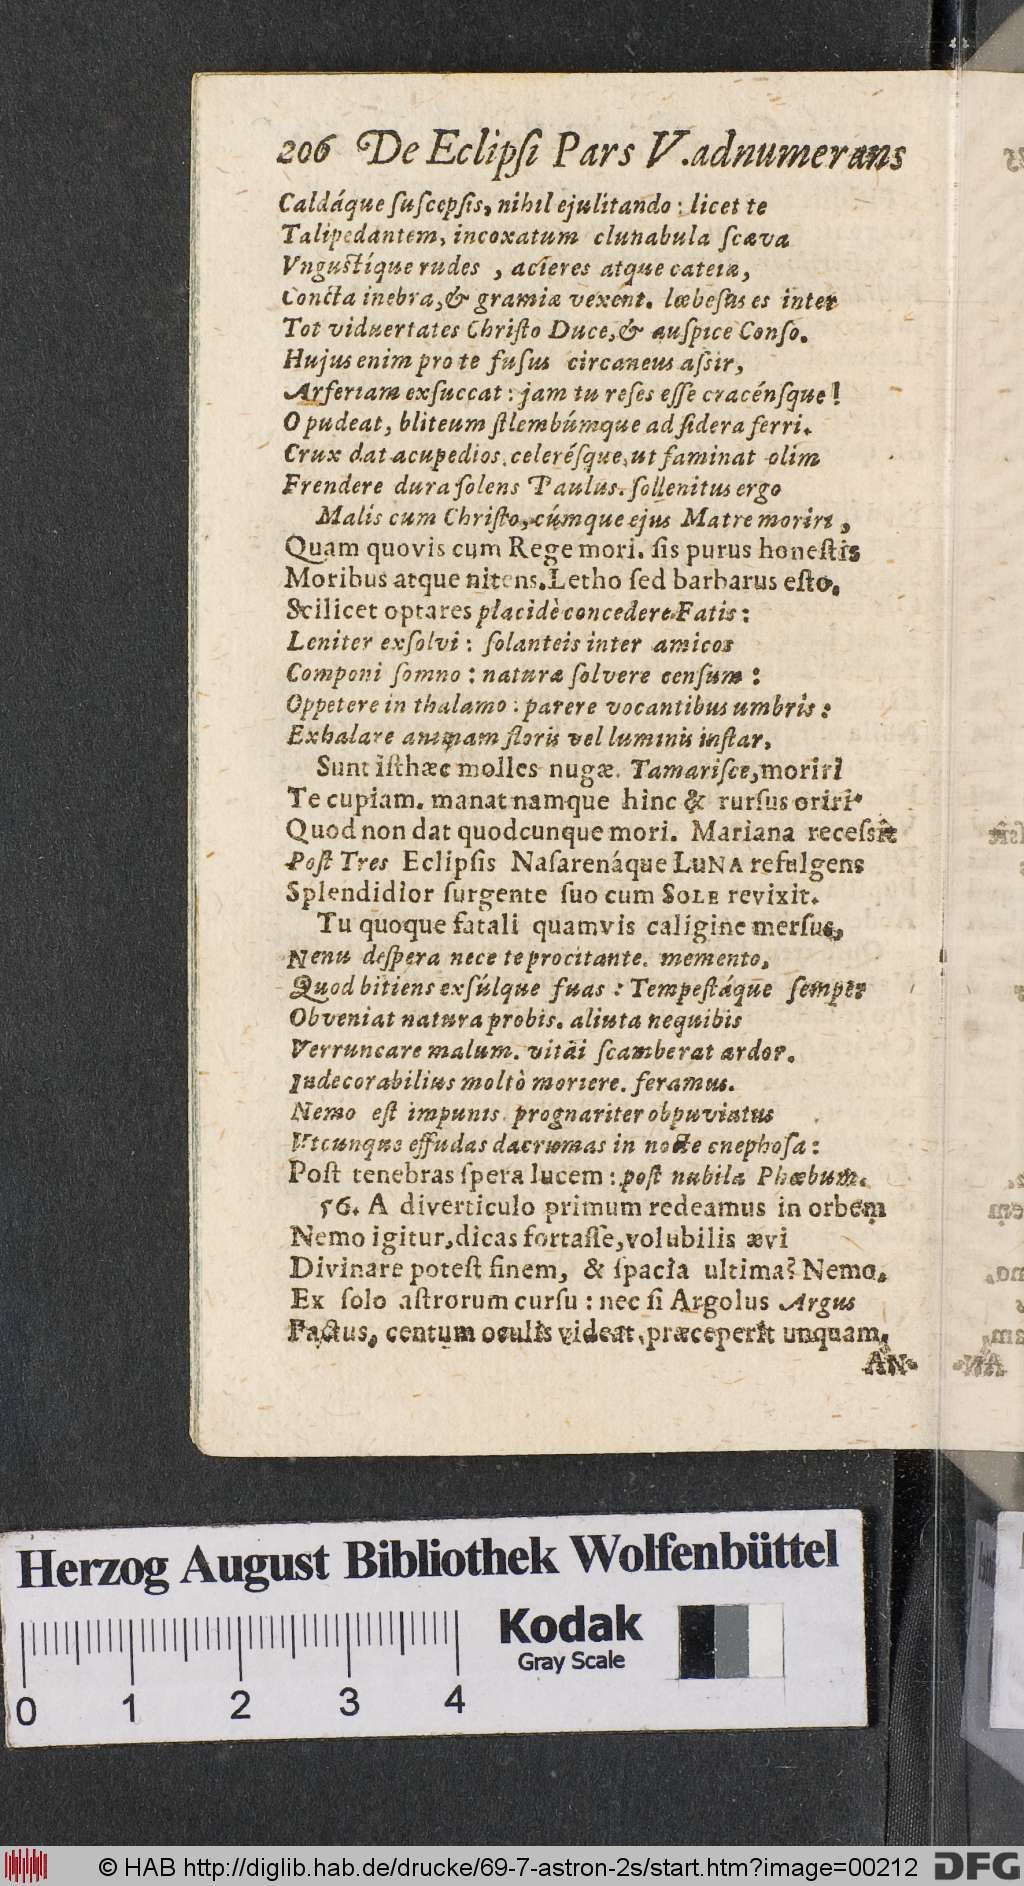 206 De Eclipsi Pars V. adnumerans
Caldáque suscepsis, nihil ejulitando: licet te
Talipedantem, incoxatum clunabula scæva
Vngustíque rudes, acieres atque cateiæ,
Concta inebra, & gramiæ vexent. læbesus es inter
Tot viduertates Christo Duce, & auspice Conso.
Hujus enim pro te fusus circaneus assir,
Arferiam exsuccat: jam tu reses esse cracénsque!
O pudeat, bliteum stlembúmque ad sidera ferri.
Crux dat acupedios, celerésque, ut faminat olim
Frendere dura solens Paulus. sollenitus ergo
Malis cum Christo, cúmque ejus Matre moriri,
Quam quovis cum Rege mori. sis purus honestis
Moribus atque nitens. Letho sed barbarus esto.
Scilicet optares placidè concedere Fatis:
Leniter exsolvi: solanteis inter amicos
Componi somno: naturæ solvere censum:
Oppetere in thalamo: parere vocantibus umbris:
Exhalare animam floris vel luminis instar,
Sunt isthæc molles nugæ. Tamarisce, moriri
Te cupiam. manat namque hinc & rursus oriri.
Quod non dat quodcunque mori. Mariana recessit
Post Tres Eclipsis Nasarenáque LuNA refulgens
Splendidior surgente suo cum SOLE revixit.
Tu quoque fatali quamvis caligine mersus,
Nenu despera nece te procitante. memento,
Quod bitiens exsúlque fuas: Tempestáque semper
Obveniat natura probis. aliuta nequibis
Verruncare malum. vitāi scamberat ardor.
Indecorabilius moltò moriere. feramus.
Nemo est impunis prognariter obpuviatus
Vtcunque effudas dacrumas in nocte cnephosa:
Post tenebras spera lucem: post nubila Phœbum.
56. A diverticulo primum redeamus in orbem
Nemo igitur, dicas fortasse, volubilis ævi
Divinare potest finem, & spacia ultima? Nemo,
Ex solo astrorum cursu: nec si Argolus Argus
Factus, centum oculis videat, præceperit unquam,
AN-
Herzog August Bibliothek Wolfenbüttel
Kodak
Gray Scale
0 1 2 3 4
© HAB http://diglib.hab.de/drucke/69-7-astron-2s/start.htm?image=00212 DFG